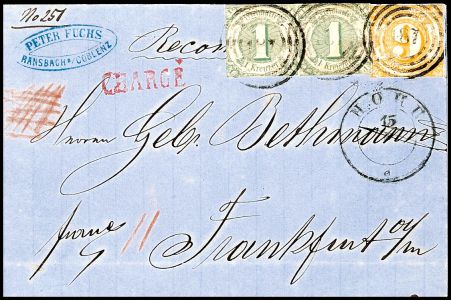 No 251
PETER FUCHS
RANSBACH B/COBLENZ
Recom
CHARGÉ
1
1 Kreuzer
1
1 Kreuzer
15
Herren Gebr. Bethmann
franco
11
Frankfurt a/m